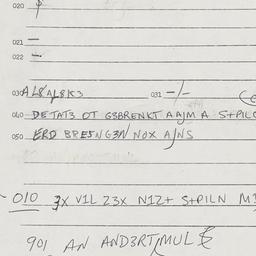 020
021 —
022 —
030 A L8 A/L8K3 031 -/-
040 DE TAT3 OT G3BRENKT AAJM A S+PILC
050 ERD BRE5NG3N NOX A/NS
010 3X V1L Z3X N1Z+ S+PILN M3
901 AN AND3RT/MUL $